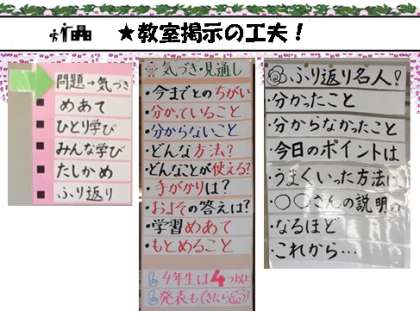 ★教室掲示の工夫！
問題→気づき
めあて
ひとり学び
みんな学び
たしかめ
ふり返り
気づき・見通し
・今までとのちがい
・分かっていること
・分からないこと
・どんな方法？
・どんなことが使える？
・手がかりは？
・およその答えは？
・学習めあて
・もとめること
4年生は4つ以上
発表もできたら
ふり返り名人！
・分かったこと
・分からなかったこと
・今日のポイントは
・うまくいった方法は
・〇〇さんの説明
・なるほど
・これから…